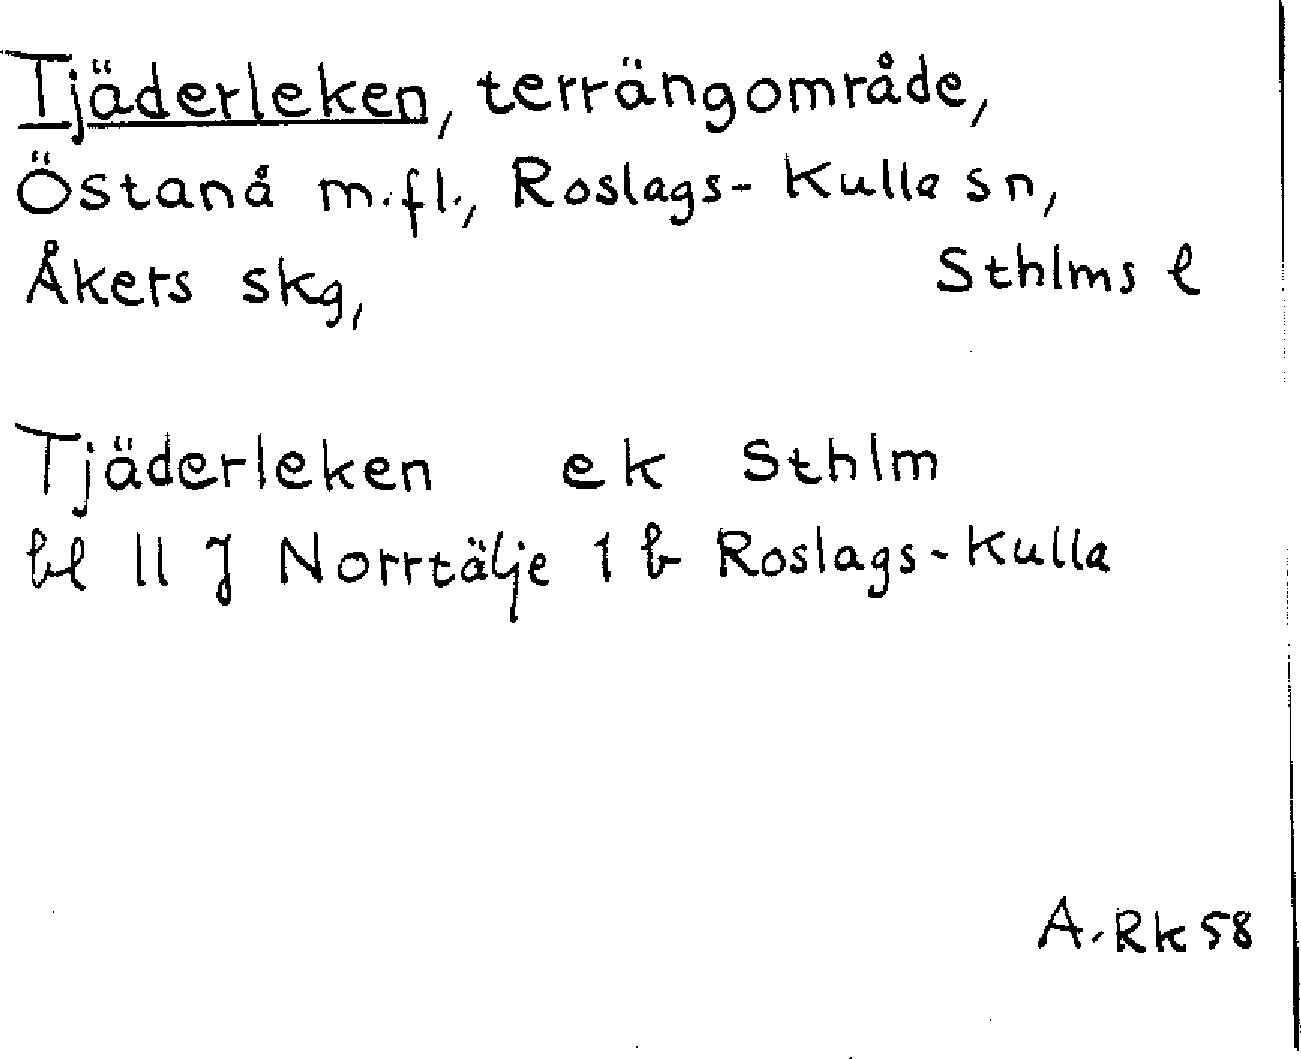 Tjäderleken, terrängområde,
Östanå m.fl., Roslags-Kulla sn,
Åkers skg, Sthlms l
Tjäderleken ek Sthlm
bl 11 J Norrtälje 1 b Roslags-Kulla
A.Rk 58